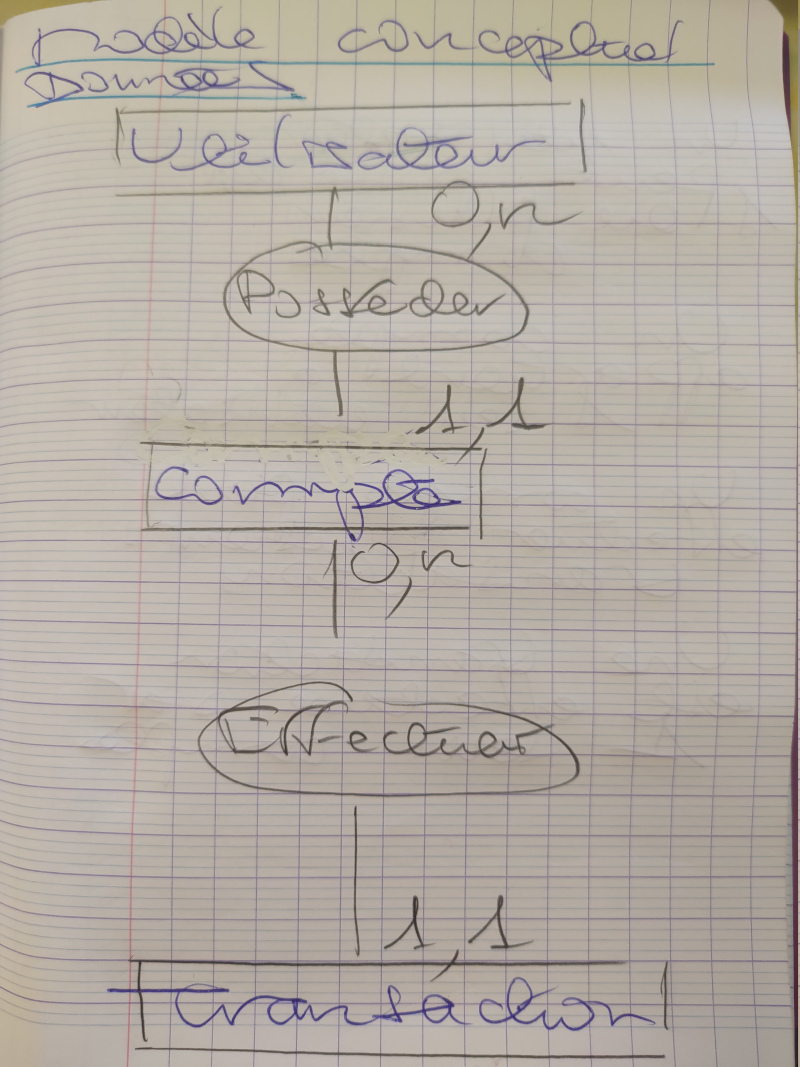 modèle conceptuel
Données
Utilisateur
0,n
Posséder
1,1
Compte
0,n
Effectuer
1,1
transaction